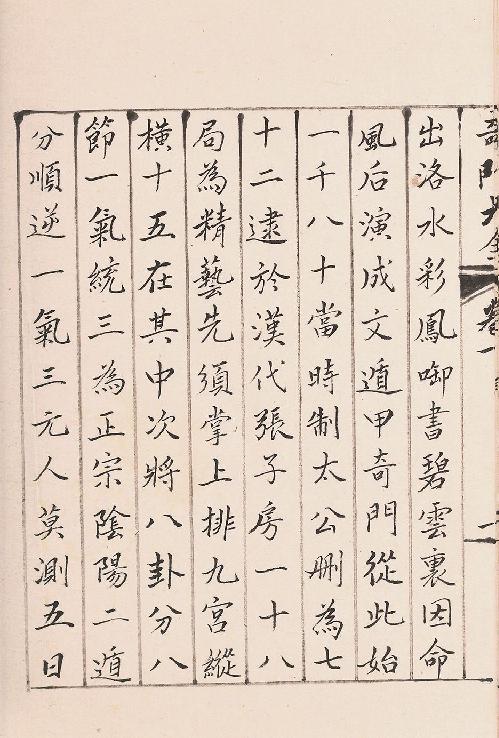 出洛水彩鳳啣書碧雲裏因命
風后演成文遁甲奇門從此始
一千八十當時制太公刪為七
十二逮於漢代張子房一十八
局為精藝先須掌上排九宮縱
橫十五在其中次將八卦分八
節一氣統三為正宗陰陽二遁
分順逆一氣三元人莫測五日